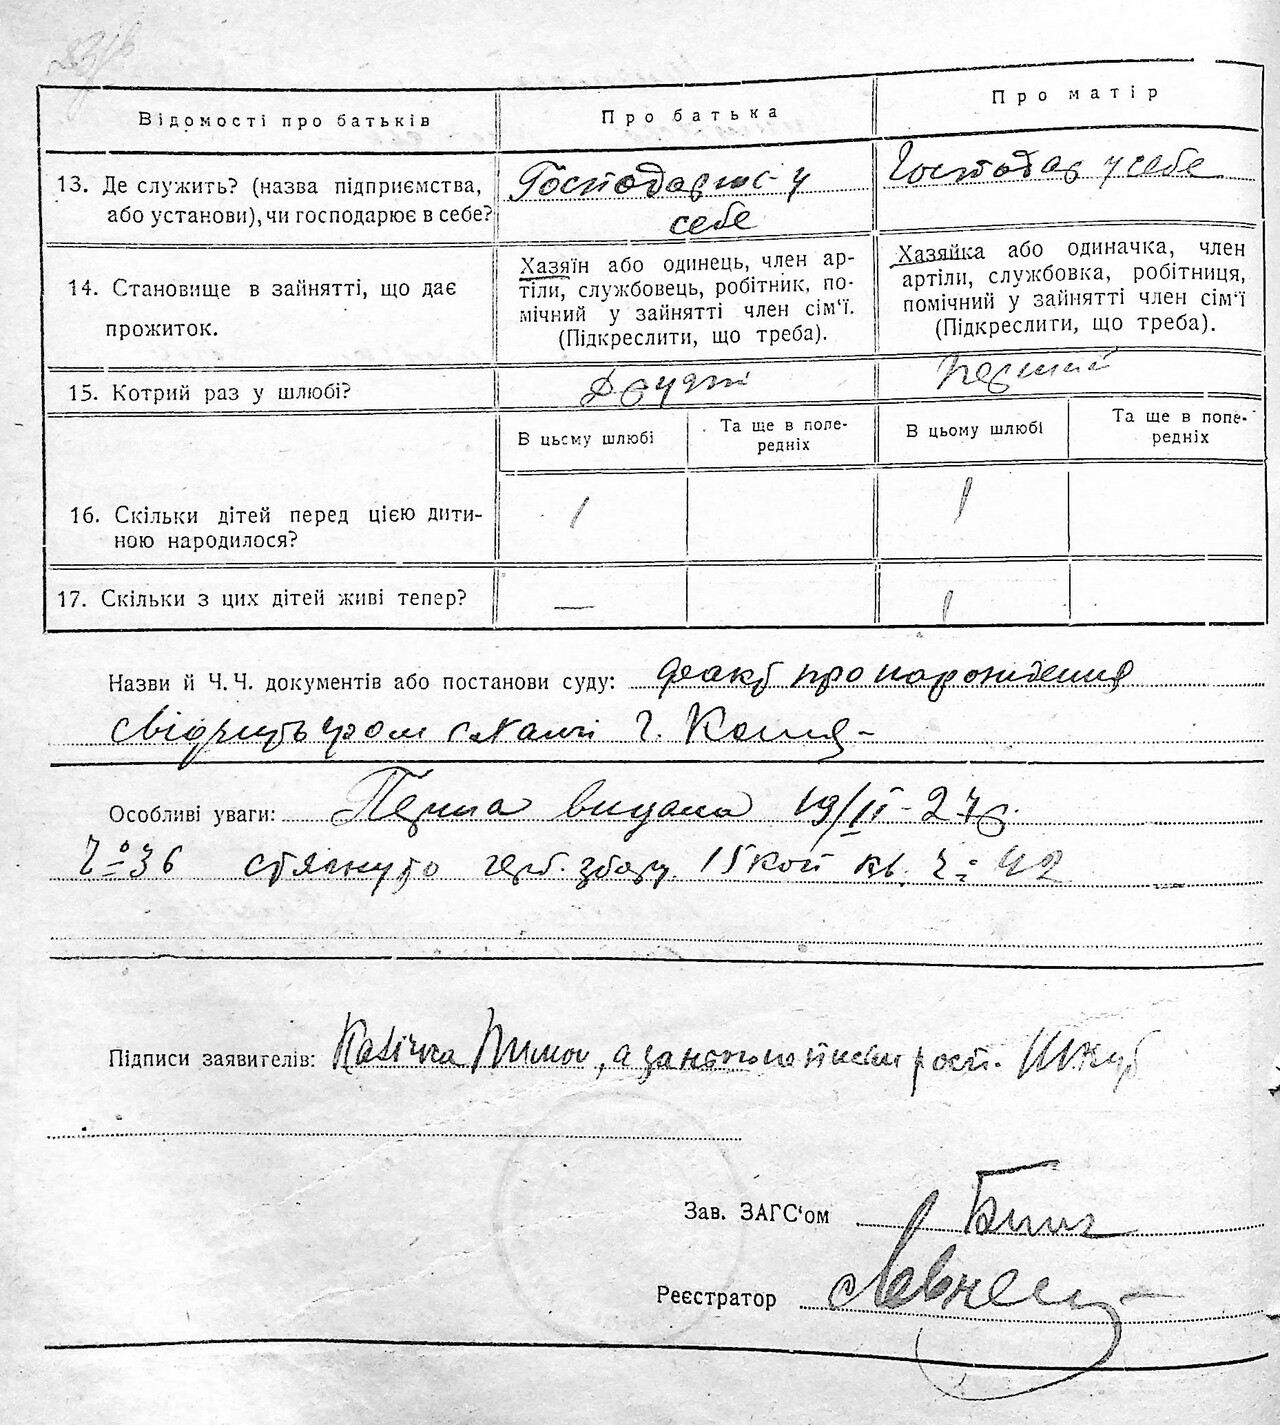 Відомості про батьків
Про батька
Про матір
13. Де служить? (назва підприємства,
або установи), чи господарює в себе?
Господарює у
себе
Господар у себе
14. Становище в зайнятті, що дає
прожиток.
Хазяїн або одинець, член ар-
тіли, службовець, робітник, по-
мічний у зайнятті член сім‘ї.
(Підкреслити, що треба).
Хазяйка або одиначка, член
артіли, службовка, робітниця,
помічний у зайнятті член сім‘ї
(Підкреслити, що треба).
15. Котрий раз у шлюбі?
Другий
Перший
В цьому шлюбі
Та ще в попе-
редніх
В цьому шлюбі
Та ще в попе-
редніх
16. Скільки дітей перед цією дити-
ною народилося?
1
1
17. Скільки з цих дітей живі тепер?
—
1
Назви й Ч. Ч. документів або постанови суду: факт про народження
свідчить гром
Особливі уваги: Перша видана 19/II-27р.
Ч= 36 стягнуто герб. збору 15 коп кв. Ч= 42
Підписи заявителів:
Зав. ЗАГС‘ом
Реєстратор